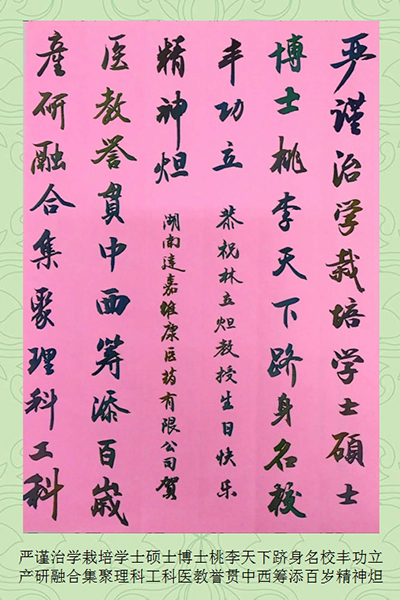 严谨治学栽培学士碩士
博士桃李天下跻身名校
丰功立
恭祝林立炟教授生日快乐
産研融合集聚理科工科
医教誉贯中西筹添百歲
精神炟
湖南達嘉维康医药有限公司贺
严谨治学栽培学士硕士博士桃李天下跻身名校丰功立
产研融合集聚理科工科医教誉贯中西筹添百岁精神炟